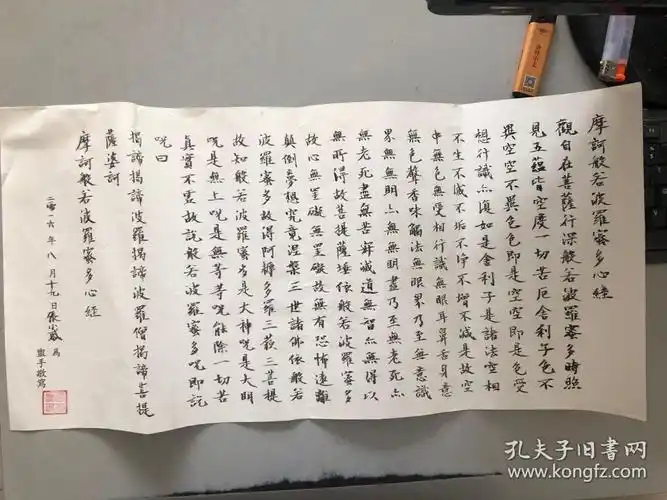 摩訶般若波羅蜜多心經
觀自在菩薩行深般若波羅蜜多時照
見五蘊皆空度一切苦厄舍利子色不
異空空不異色色即是空空即是色受
想行識亦復如是舍利子是諸法空相
不生不滅不垢不淨不增不減是故空
中無色無受相行識無眼耳鼻舌身意
無色聲香味觸法無眼界乃至無意識
界無無明亦無無明盡乃至無老死亦
無老死盡無苦集滅道無智亦無得以
無所得故菩提薩埵依般若波羅蜜多
故心無罣礙無罣礙故無有恐怖遠離
顛倒夢想究竟涅槃三世諸佛依般若
波羅蜜多故得阿耨多羅三藐三菩提
故知般若波羅蜜多是大神咒是大明
咒是無上咒是無等等咒能除一切苦
真實不虛故說般若波羅蜜多咒即說
咒曰
揭諦揭諦波羅揭諦波羅僧揭諦菩提
薩婆訶
摩訶般若波羅蜜多心經
二零一六年八月十九日張
盥手敬寫
孔夫子旧书网
www.kongfz.com